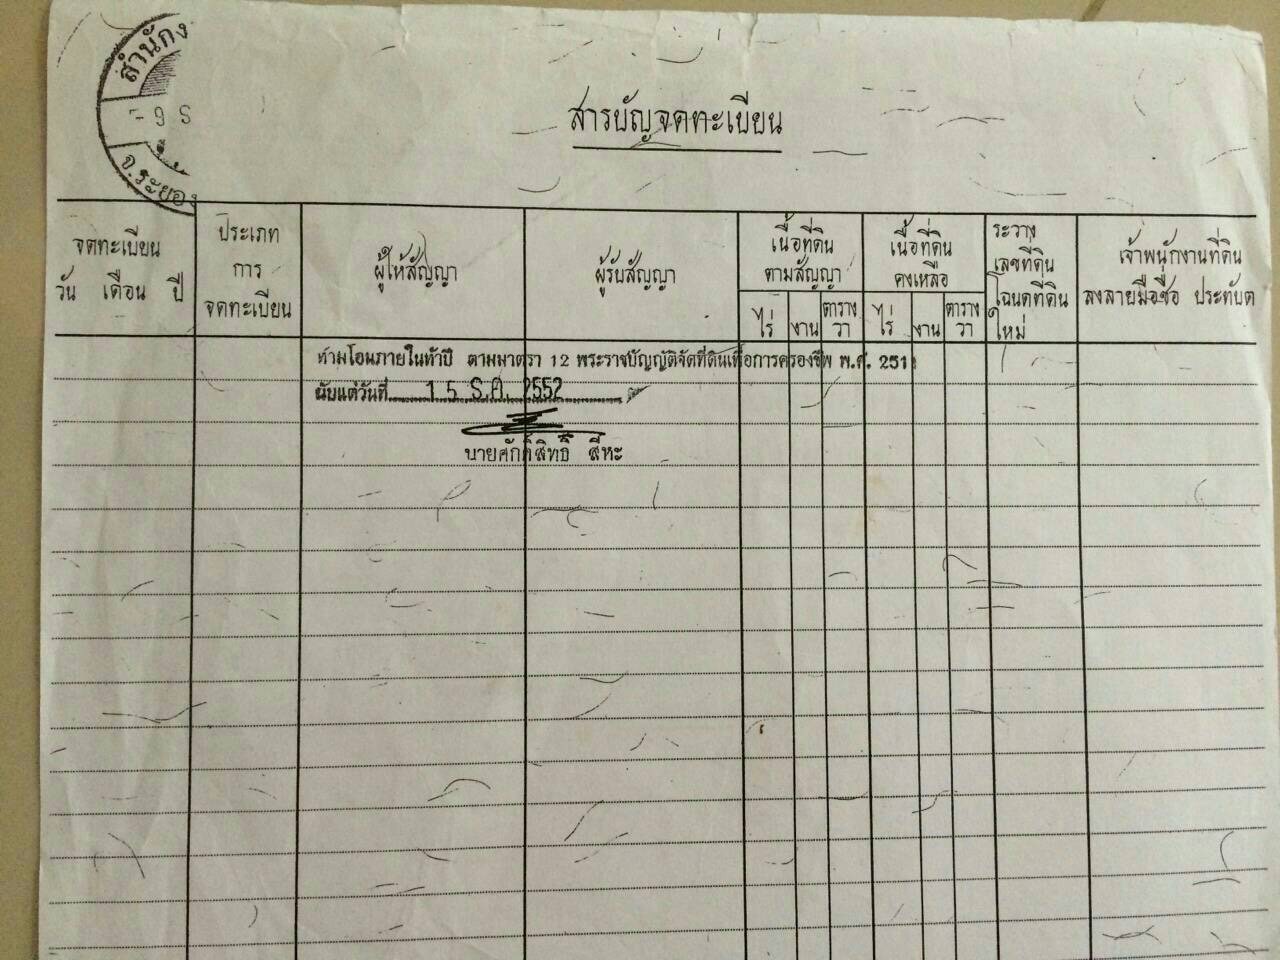 สำนักง
- 9 S
จ.ระยอง
สารบัญจดทะเบียน
จดทะเบียน
วัน เดือน ปี
ประเภท
การ
จดทะเบียน
ผู้ให้สัญญา
ผู้รับสัญญา
เนื้อที่ดิน
ตามสัญญา
ไร่ งาน ตาราง
วา
เนื้อที่ดิน
คงเหลือ
ไร่ งาน ตาราง
วา
ระวาง
เลขที่ดิน
โฉนดที่ดิน
ใหม่
เจ้าพนักงานที่ดิน
ลงลายมือชื่อ ประทับต
ห้ามโอนภายในห้าปี ตามมาตรา 12 พระราชบัญญัติจัดที่ดินเพื่อการครองชีพ พ.ศ. 2511
นับแต่วันที่ 15 ธ.ค. 2552
นายศักดิ์สิทธิ์ สีหะ